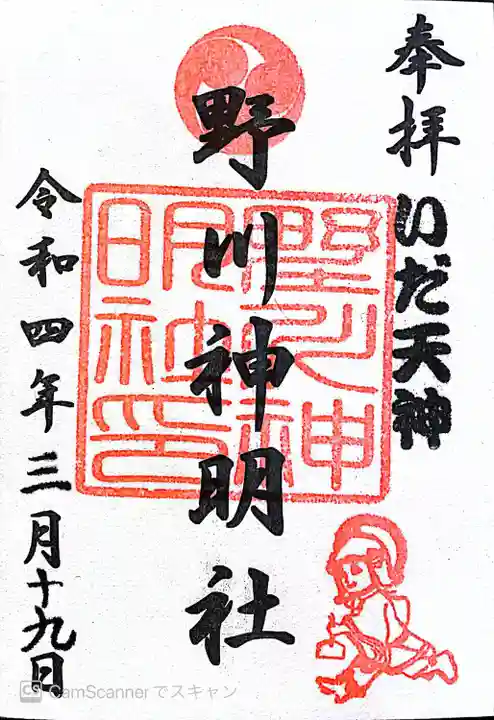 奉拝
いだ天神
野川神明社
野川神明社印
令和四年三月十九日
CS CamScannerでスキャン